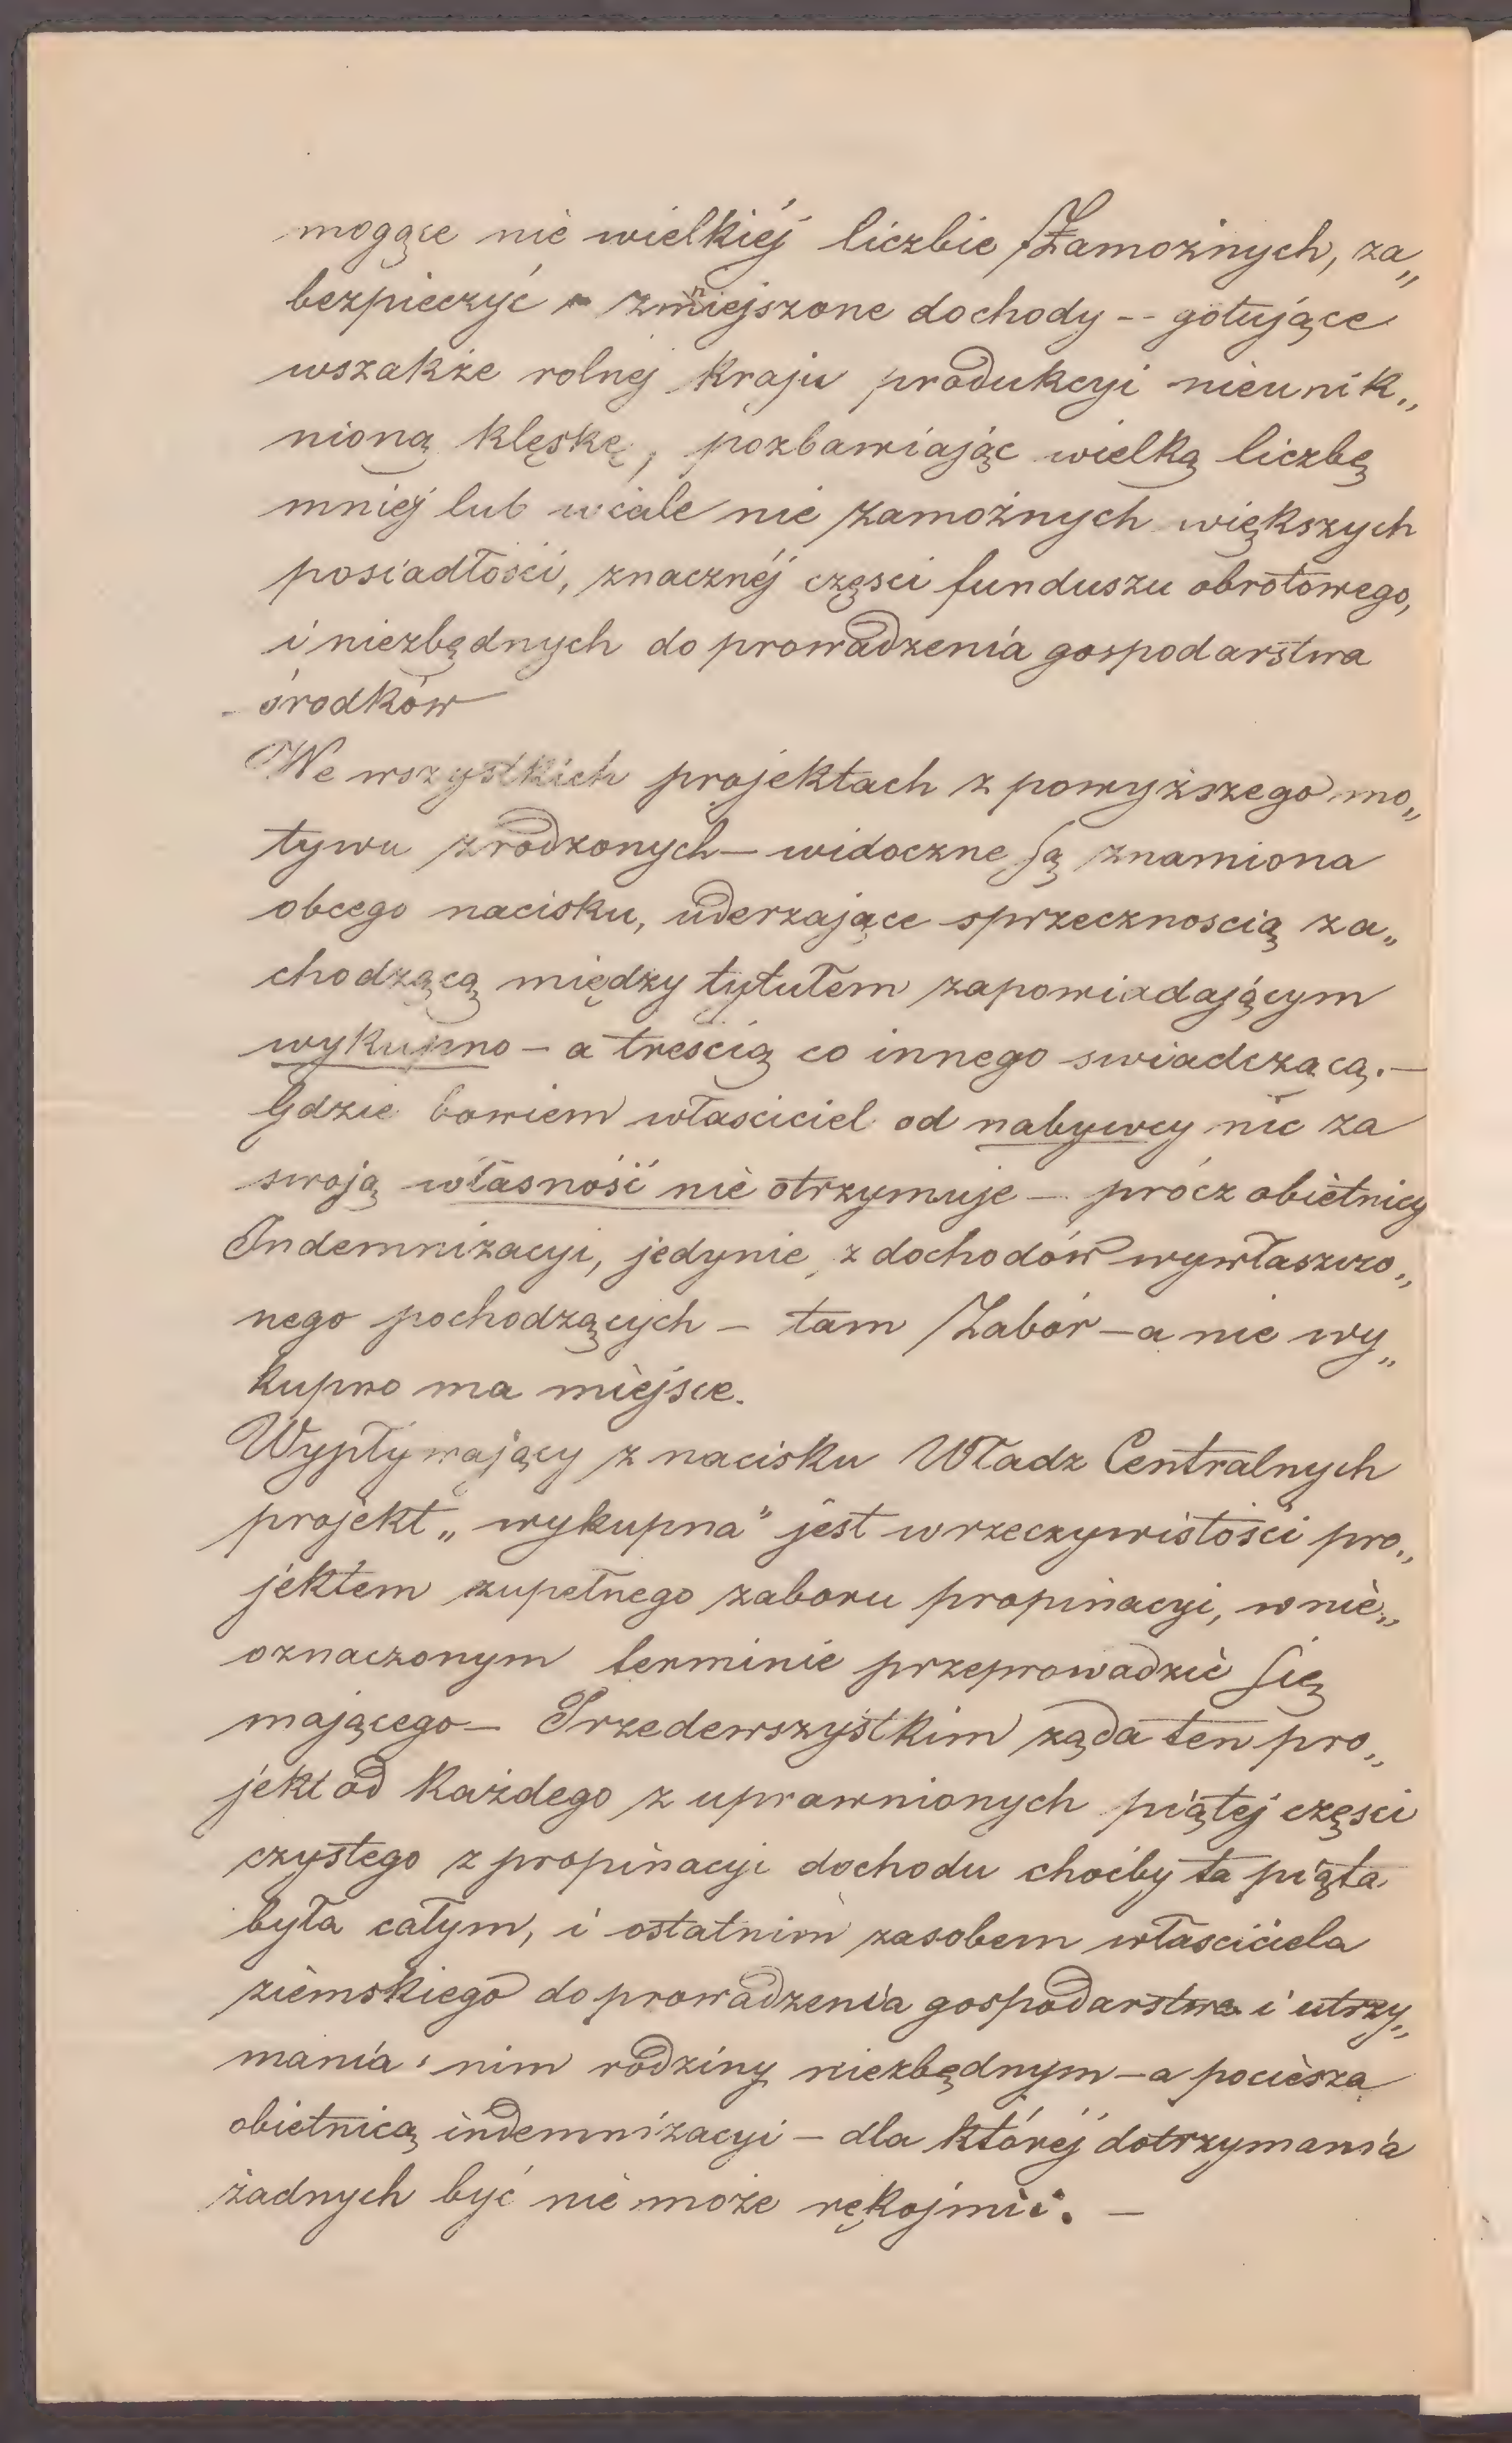 mogące nie wielkiéj liczbie Zamożnych, za„
bezpieczyć zmniejszone dochody -- gotujące
wszakże rolnej Kraju produkcyi nieunik„
nioną klęskę, pozbawiając wielką liczbę
mniej lub wcale nie zamożnych większych
posiadłości, znacznéj częsci funduszu obrotowego,
i niezbędnych do prowadzenia gospodarstwa
środków
We wszystkich projektach z powyższego mo„
tywu zrodzonych — widoczne są znamiona
obcego nacisku, uderzające sprzecznoscią za„
chodzącą między tytułem zapowiadającym
wykupno — a treścią co innego swiadczącą. —
Gdzie bowiem własciciel od nabywcy nic za
swoją własność nie otrzymuje — prócz obietnicy
Indemnizacyi, jedynie z dochodów wywłaszczo„
nego pochodzących — tam Zabór — a nie wy„
kupno ma miejsce.
Wypływający z nacisku Władz Centralnych
projekt „wykupna" jest w rzeczywistości pro„
jektem zupełnego zaboru propinacyi, w nie„
oznaczonym terminie przeprowadzić się
mającego — Przedewszystkim ząda ten pro„
jekt od Każdego z uprawnionych piątej częsci
czystego z propinacyi dochodu choćby ta piąta
była całym, i ostatnim zasobem własciciela
ziemskiego do prowadzenia gospodarstwa i utrzy„
mania nim rodziny niezbędnym — a pociesza
obietnicą indemnizacyi — dla któréj dotrzymania
żadnych być nie może rękojmii. —